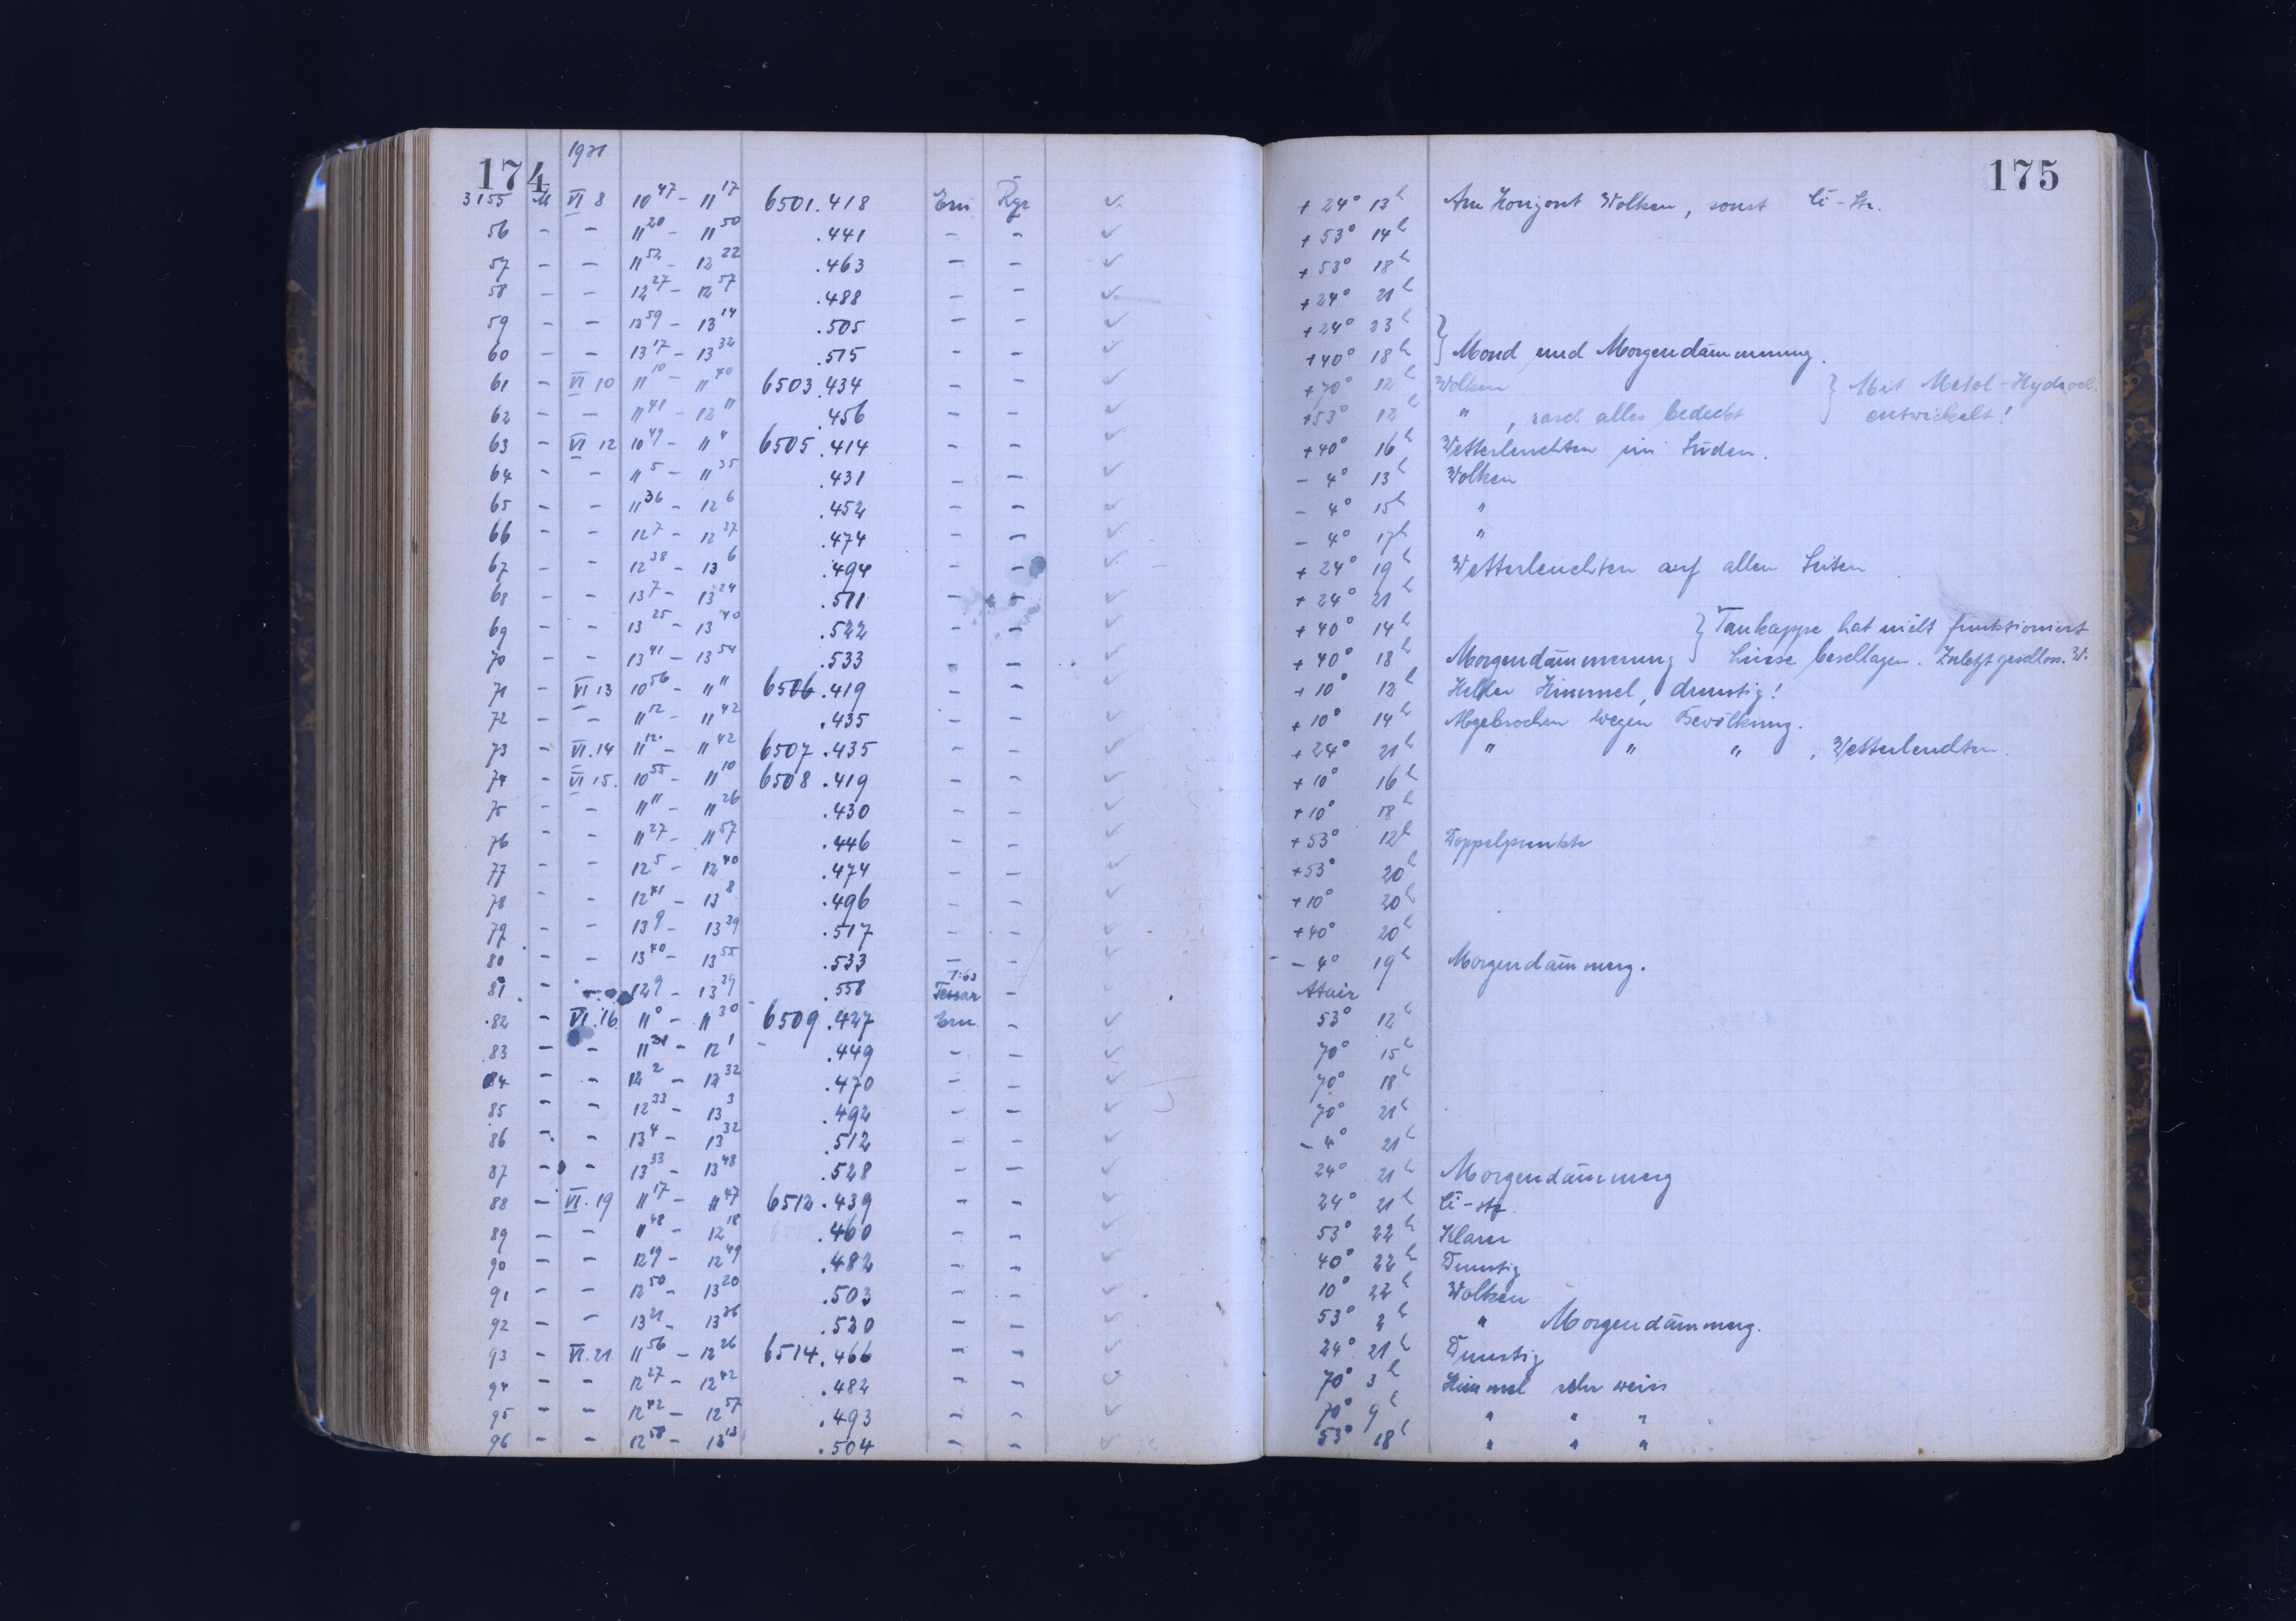 174
1931
175
3155 M VI 8 10 47 - 11 17 6501.418 Ern Rgr + 24° 13h Am Horizont Wolken, sonst Ci-Str.
56 - - 11 20 - 11 50 .441 - - + 53° 14h
57 - - 11 52 - 12 22 .463 - - + 53° 18h
58 - - 12 27 - 12 57 .488 - - + 24° 21h
59 - - 12 59 - 13 14 .505 - - + 24° 23h
60 - - 13 17 - 13 32 .515 - - + 40° 18h } Mond und Morgendämmerung.
61 - VI 10 11 10 - 11 40 6503.434 - - + 70° 12h Wolken } Mit Metol-Hydroch.
62 - - 11 41 - 12 11 .456 - - + 53° 12h " , rasch alles bedeckt entwickelt!
63 - VI 12 10 49 - 11 4 6505.414 - - + 40° 16h Wetterleuchten im Süden.
64 - - 11 5 - 11 35 .431 - - - 4° 13h Wolken
65 - - 11 36 - 12 6 .452 - - - 4° 15h "
66 - - 12 7 - 12 37 .474 - - - 4° 17h "
67 - - 12 38 - 13 6 .494 - - + 24° 19h Wetterleuchten auf allen Seiten
68 - - 13 7 - 13 24 .511 - - + 24° 21h
69 - - 13 25 - 13 40 .522 - - + 40° 14h } Taukappe hat nicht funktioniert
70 - - 13 41 - 13 54 .533 - - + 40° 18h Morgendämmerung Linse beschlagen. Zuletzt geschloss. W.
71 - VI 13 10 56 - 11 11 6506.419 - - + 10° 12h Heller Himmel, dunstig!
72 - - 11 12 - 11 42 .435 - - + 10° 14h Abgebrochen wegen Bewölkung.
73 - VI.14 11 12 - 11 42 6507.435 - - + 24° 21h " " " , Wetterleuchten.
74 - VI 15. 10 55 - 11 10 6508.419 - - + 10° 16h
75 - - 11 11 - 11 26 .430 - - + 10° 18h
76 - - 11 27 - 11 57 .446 - - + 53° 12h Doppelpunkte
77 - - 12 5 - 12 40 .474 - - + 53° 20h
78 - - 12 41 - 13 8 .496 - - + 10° 20h
79 - - 13 9 - 13 39 .517 - - + 40° 20h
80 - - 13 40 - 13 55 .533 - - - 4° 19h Morgendämmerg.
81 - - 12 9 - 13 39 .558 Tessar - Atair
82 - VI.16 11 0 - 11 30 6509.427 Ern - 53° 12h
83 - - 11 31 - 12 1 .449 - - 70° 15h
84 - - 12 2 - 12 32 .470 - - 70° 18h
85 - - 12 33 - 13 3 .492 - - 70° 21h
86 - - 13 4 - 13 32 .512 - - - 4° 21h
87 - - 13 33 - 13 48 .528 - - 24° 21h Morgendämmerg
88 - VI.19 11 17 - 11 47 6512.439 - - 24° 21h Ci-str
89 - - 11 48 - 12 18 .460 - - 53° 22h Klarer
90 - - 12 19 - 12 49 .482 - - 40° 22h Dunstig
91 - - 12 50 - 13 20 .503 - - 10° 22h Wolken
92 - - 13 21 - 13 36 .520 - - 53° 2h " Morgendämmerg.
93 - VI.21 11 56 - 12 26 6514.466 - - 24° 21h Dunstig
94 - - 12 27 - 12 42 .482 - - 70° 3h Himmel sehr weiss
95 - - 12 42 - 12 57 .493 - - 70° 9h " " "
96 - - 12 58 - 13 13 .504 - - 53° 18h " " "